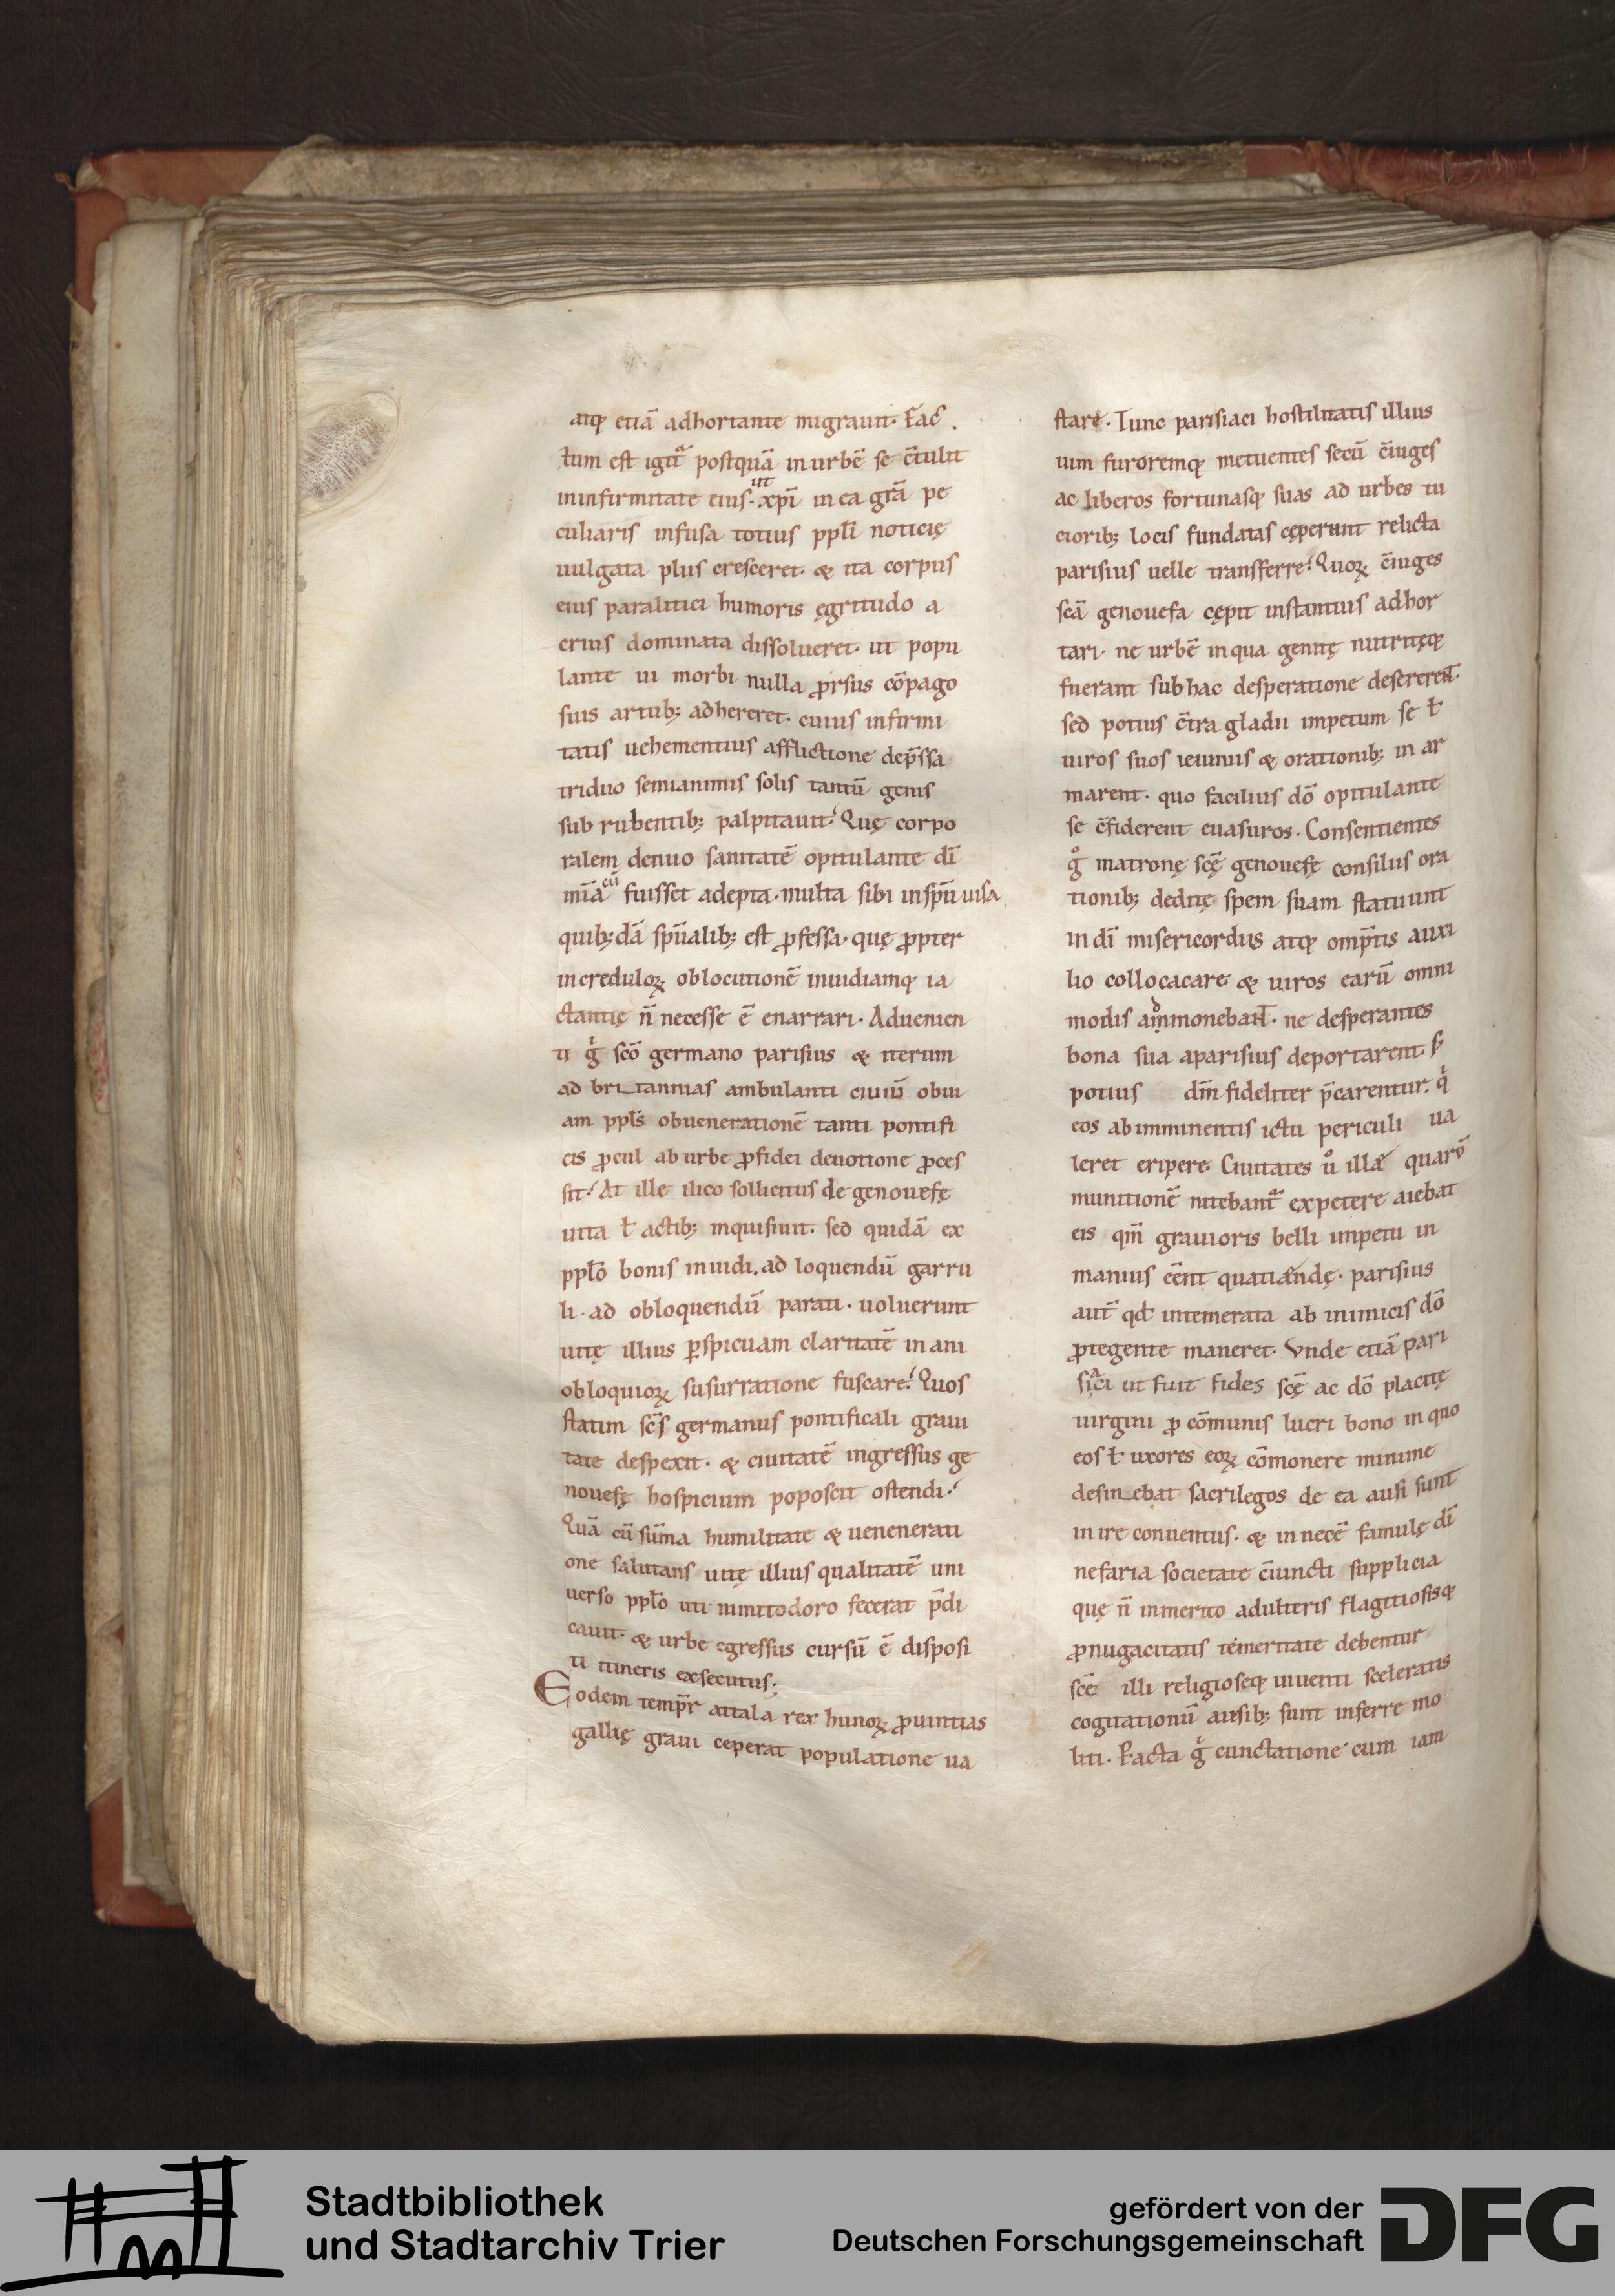 atq; etiā adhortante migrauit. Fac
tum est igit᷑ postquā in urbē se c̄tulit
in infirmitate eius. ut xpī in ea grā pe
culiaris infusa totius ppłi noticię
uulgata plus cresceret. & ita corpus
eius paralitici humoris ęgritudo a
crius dominata dissolueret. ut popu
lante ui morbi nulla ꝓrsus cōpago
suis artub; adhereret. cuius infirmi
tatis uehementius afflictione dep̄ssa
triduo semianimis solis tantū genis
sub rubentib; palpitauit. Quę corpo
ralem denuo sanitatē opitulante dī
mīa cū fuisset adepta. multa sibi in spū uisa
quib;dā spūalib; est ꝓfessa. quę ꝓpter
increduloꝝ oblocutionē inuidiamq; ia
ctantię n̄ necesse ē enarrari. Aduenien
ti gͥ scō germano parisius & iterum
ad britannias ambulanti ciuiū obui
am ppłs ob uenerationē tanti pontifi
cis ꝓcul ab urbe ꝓ fidei deuotione ꝓces
sit. At ille ilico sollicitus de genouefę
uita ł actib; inquisiuit. sed quidā ex
ppło bonis inuidi. ad loquendū garru
li. ad obloquendū parati. uoluerunt
uitę illius ꝑspicuam claritatē in ani
obloquioꝝ susurratione fuscare. Quos
statim sc̄s germanus pontificali graui
tate despexit. & ciuitatē ingressus ge
nouefę hospicium poposcit ostendi.
Quā cū sūma humilitate & uenenerati
one salutans uitę illius qualitatē uni
uerso ppło uti nimitodoro fecerat p̄di
cauit. & urbe egressus cursū ē disposi
ti itineris exsecutus;
Eodem temp̄r attala rex hunoꝝ ꝓuintias
gallię graui ceperat populatione ua
stare. Tunc parisiaci hostilitatis illius
uim furoremq; metuentes secū c̄iuges
ac liberos fortunasq; suas ad urbes tu
ciorib; locis fundatas cęperunt relicta
parisius uelle transferre. Quoꝝ c̄iuges
scā genouefa cępit instantius adhor
tari. ne urbē in qua genitę nutritęq;
fuerant sub hac desperatione desererent.
sed potius c̄tra gladii impetum se ł
uiros suos ieiuniis & orationib; in ar
marent. quo facilius dō opitulante
se c̄fiderent euasuros. Consentientes
gͦ matronę scę̄ genouefę consiliis ora
tionib; deditę spem suam statuunt
in dī misericordiis atq; omp̄tis auxi
lio collocacare & uiros earū omni
modis admonebant. ne desperantes
bona sua a parisius deportarent. s;
potius dm̄ fideliter p̄carentur. qͥ
eos ab imminentis ictu periculi ua
leret eripere. Ciuitates uͦ illæ quarū
munitionē nitebant᷑ expetere aiebat
eis qm̄ grauioris belli impetu in
manius eēnt quatiandę. parisius
aut̄ qd̄ intemerata ab inimicis dō
ꝓtegente maneret. Vnde etiā pari
siaci ut fuit fides scę̄ ac dō placitę
uirgini ꝓ cōmunis lucri bono in quo
eos ł uxores eoꝝ cōmonere minime
desinebat sacrilegos de ea ausi sunt
inire conuentus. & in necē famulę dī
nefaria societate c̄iuncti supplicia
quę n̄ inmerito adulteris flagitiosisq;
ꝓ nugacitatis temeritate debentur
scē illi religioseq; uiuenti sceleratis
cogitationū ausib; sunt inferre mo
liti. Facta gͥ cunctatione cum iam
Stadtbibliothek
und Stadtarchiv Trier
gefördert von der
Deutschen Forschungsgemeinschaft
DFG